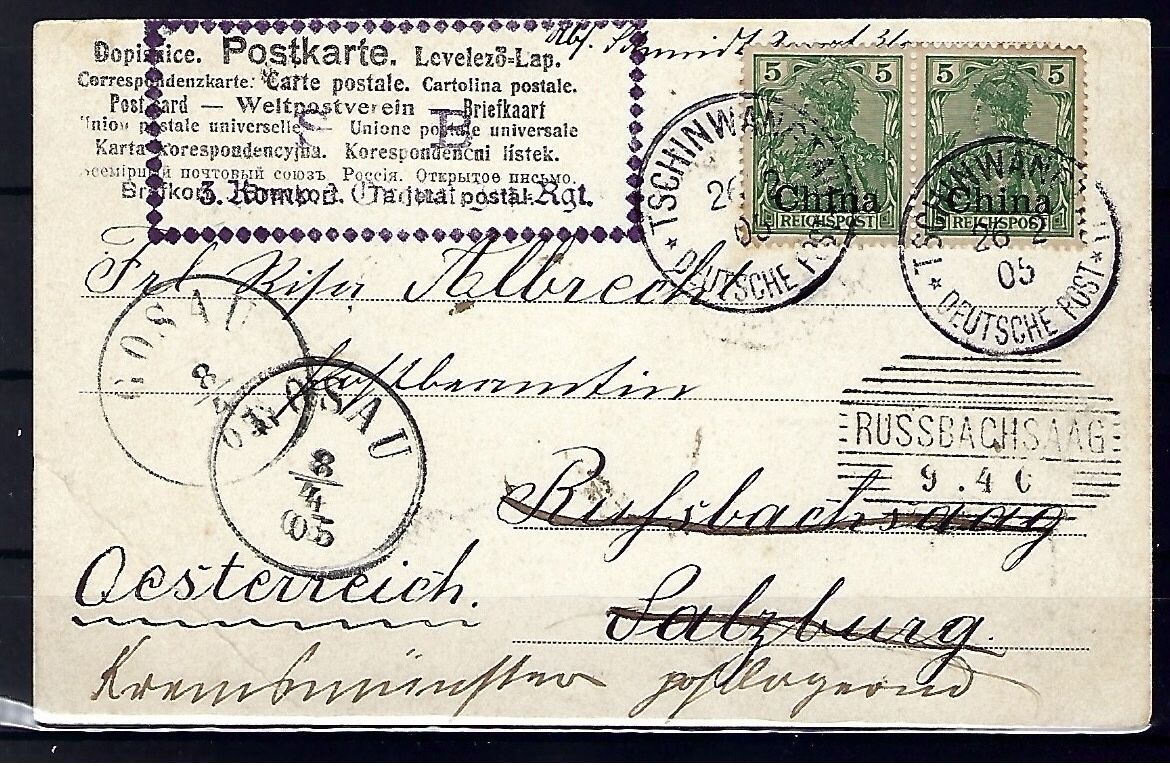 Dopisnice. Postkarte. Levelező-Lap.
Correspondenzkarte. Carte postale. Cartolina postale.
Postcard — Weltpostverein — Briefkaart
Union postale universelle — Unione postale universale
Karta korespondencyjna. Korespondenční lístek.
Всемірный почтовый союзъ. Россія. Открытое письмо.
Brefkort. Tarjetal postal.
3. Komp.
Rgt.
Abs. Schmidt
5 5
China
REICHSPOST
5 5
China
REICHSPOST
TSCHINWANGTAU
26 2
05
DEUTSCHE POST
TSCHINWANGTAU
26 2
05
DEUTSCHE POST
Frl. Risa Albrecht
Postbeamtin
GOSAU
8/4
05
GOSAU
8/4
05
RUSSBACHSAAG
9.4 0
Russbachsaag
Oesterreich.
Salzburg.
Kremsmünster postlagernd